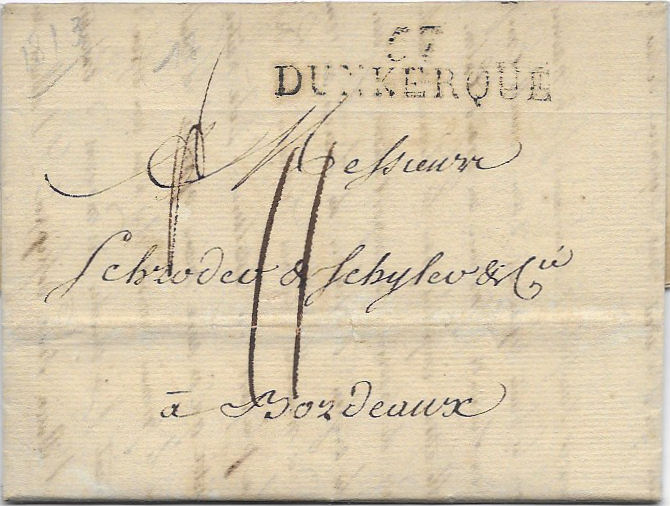 1813
57
DUNKERQUE
A Messieurs
Schroder & Schyler & Cie
11
à Bordeaux